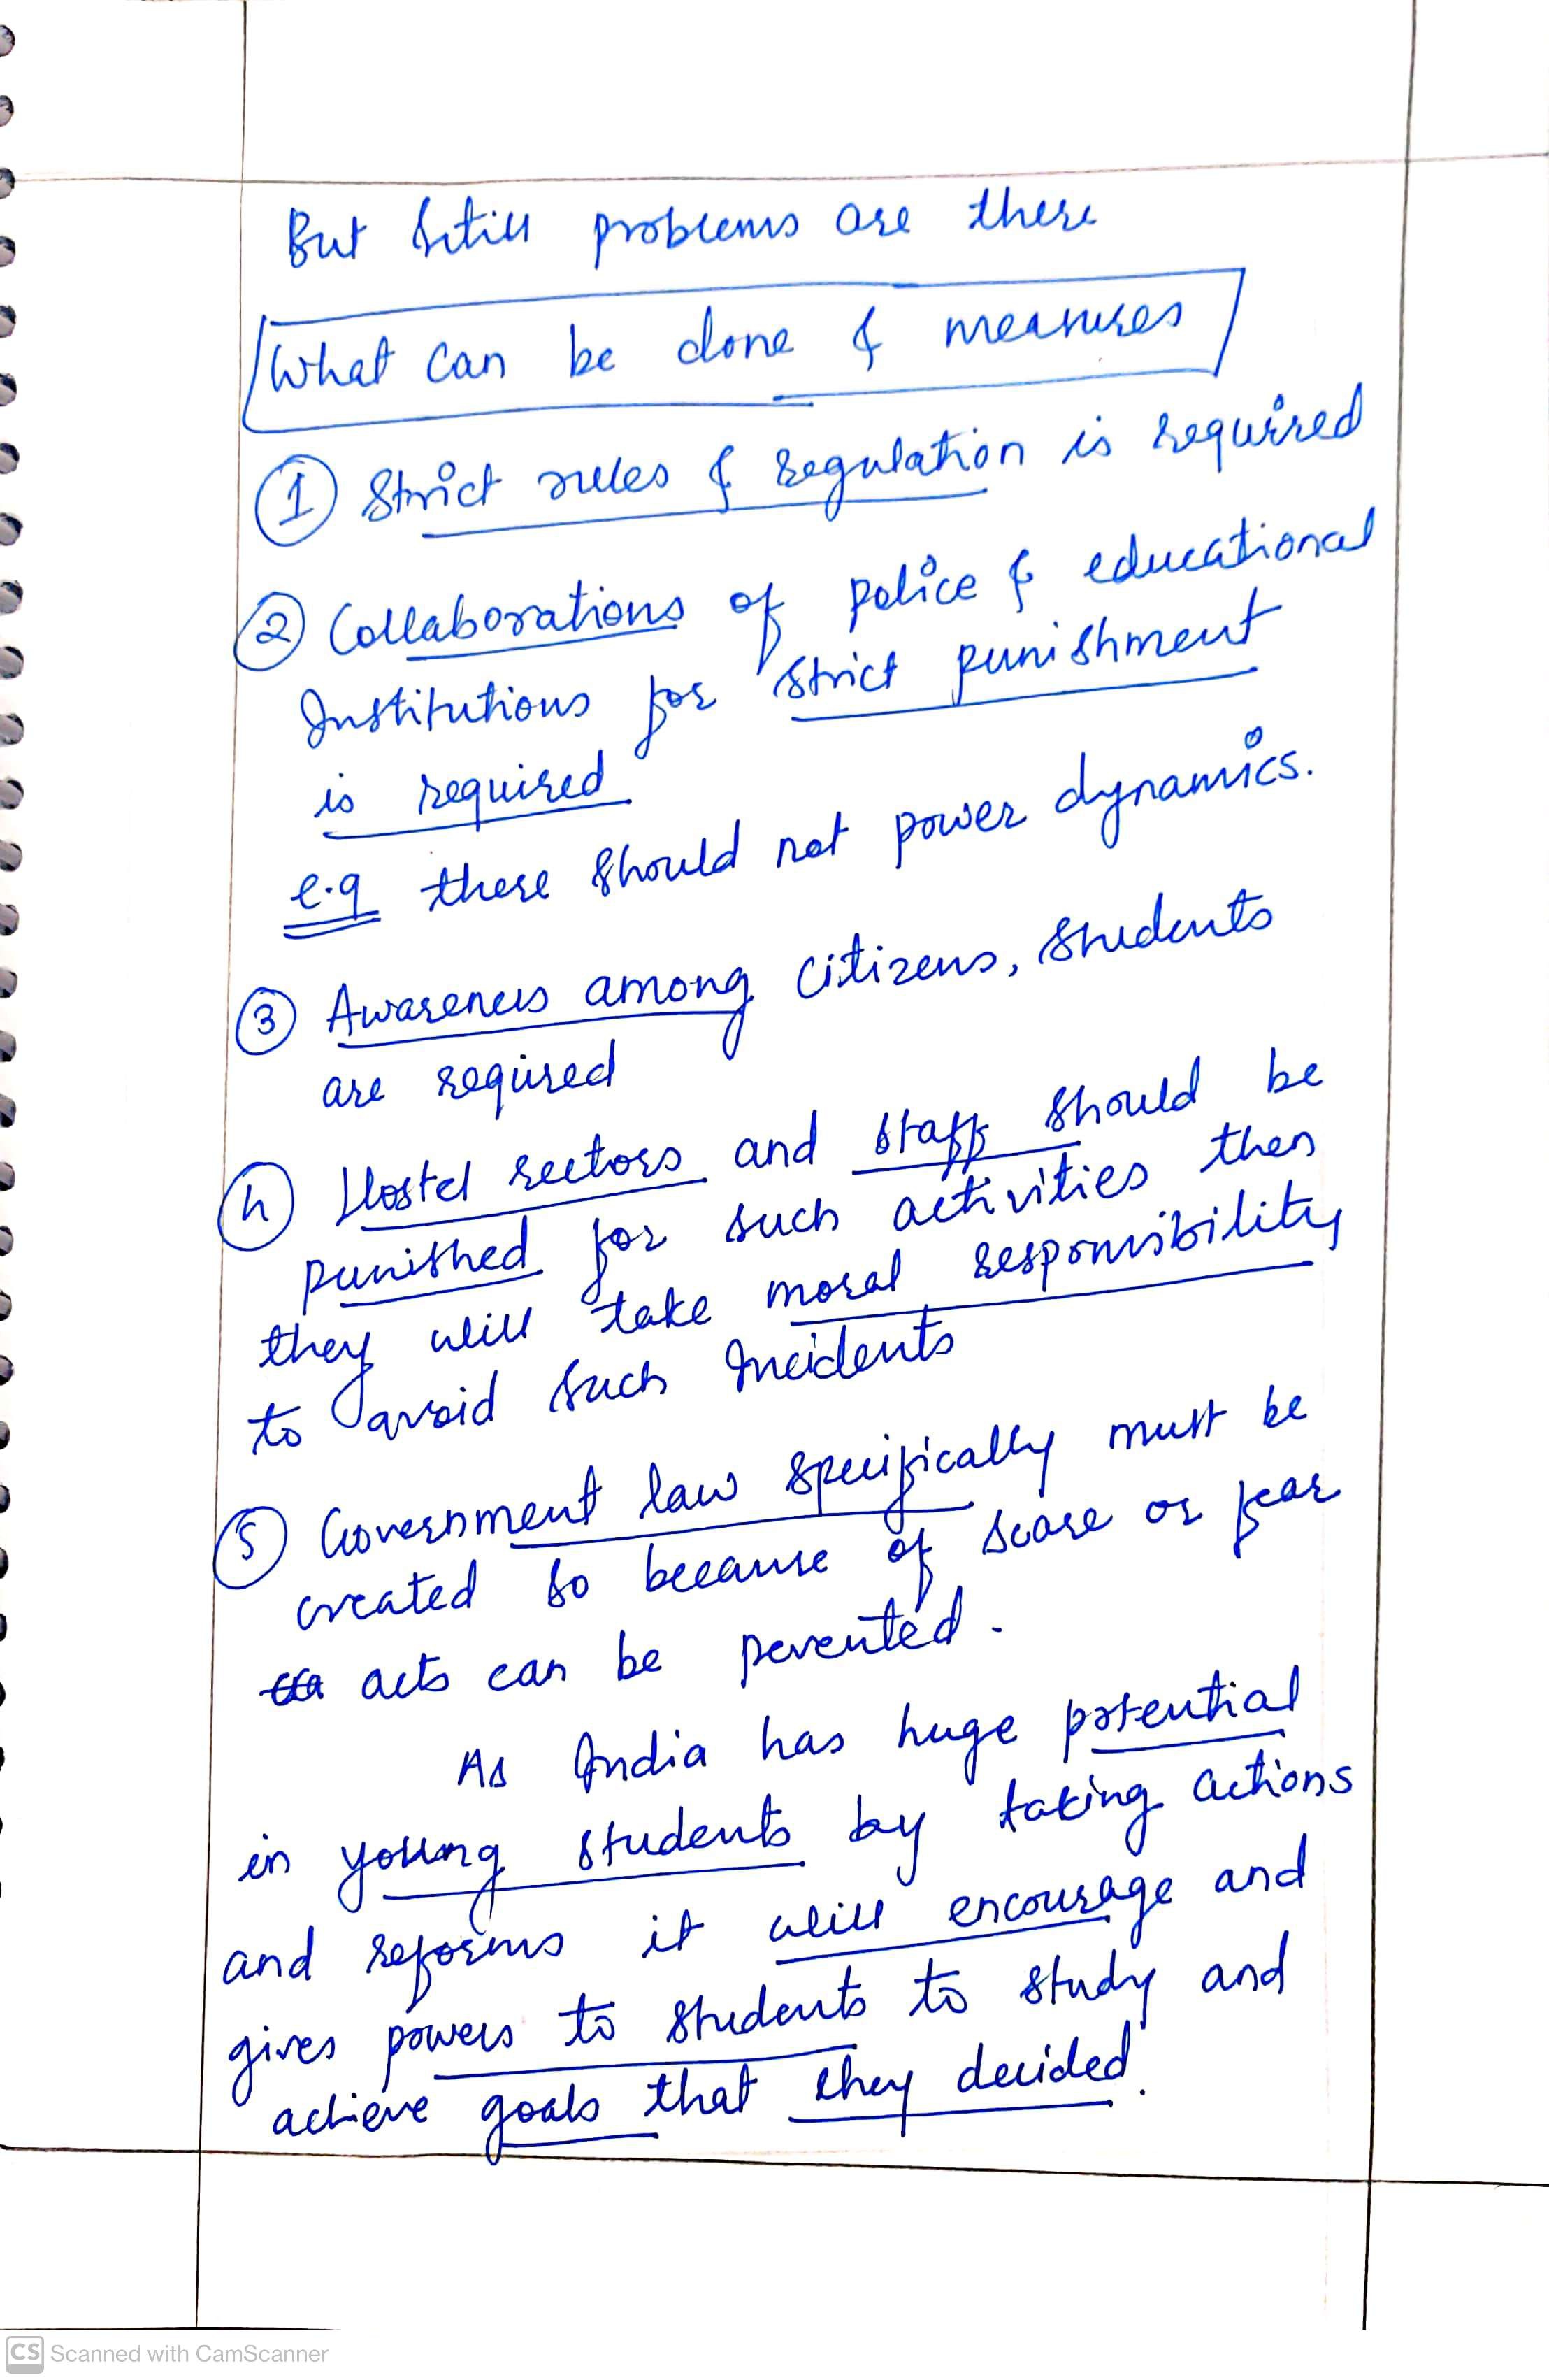 But still problems are there
What can be done & measures
① Strict rules & regulation is required
② Collaborations of police & educational
Institutions for strict punishment
is required
e.g there should not power dynamics.
③ Awareness among citizens, students
are required
④ Hostel rectors and staff should be
punished for such activities then
they will take moral responsibility
to avoid such Incidents
⑤ Government law specifically must be
created so because of scare or fear
acts can be pevented.
As India has huge potential
in young students by taking actions
and reforms it will encourage and
gives powers to students to study and
achieve goals that they decided.
CS Scanned with CamScanner